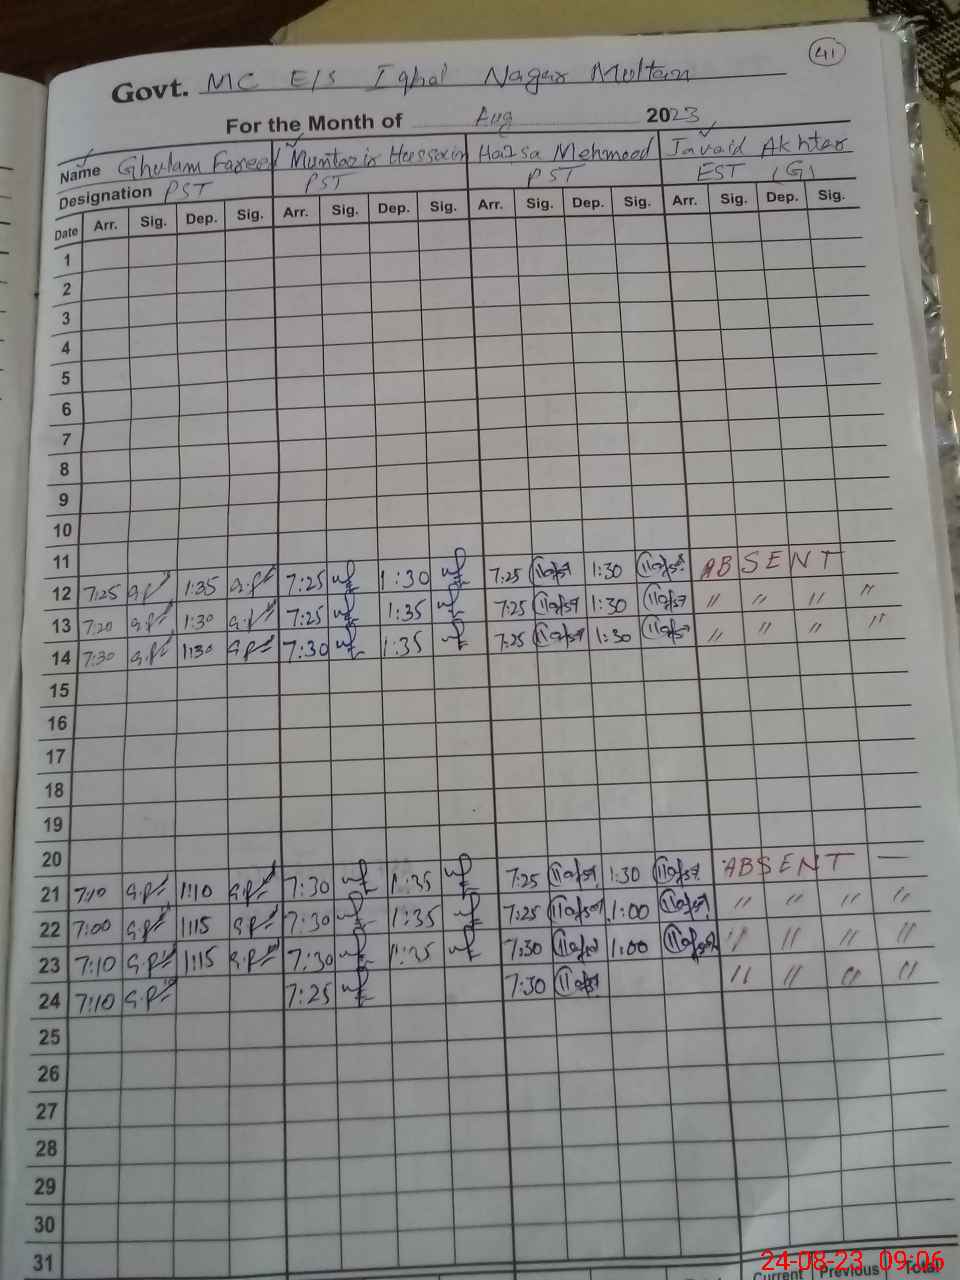 41
Govt. MC E/S Iqbal Nagar Multan
For the Month of Aug 2023
Name Ghulam Fareed Mumtaz Hussain Mehmood Javaid Akhter
Designation PST PST PST EST (G)
Date Arr. Sig. Dep. Sig. Arr. Sig. Dep. Sig. Arr. Sig. Dep. Sig. Arr. Sig. Dep. Sig.
1
2
3
4
5
6
7
8
9
10
11
12 7:25 1:35 7:25 1:30 7:25 1:30 ABSENT
13 7:20 1:30 7:25 1:35 7:25 1:30 〃 〃 〃 〃
14 7:30 1:30 7:30 1:35 7:25 1:30 〃 〃 〃 〃
15
16
17
18
19
20
21 7:10 1:10 7:30 1:35 7:25 1:30 ABSENT —
22 7:00 1:15 7:30 1:35 7:25 1:00 〃 〃 〃 〃
23 7:10 1:15 7:30 1:35 7:30 1:00 〃 〃 〃 〃
24 7:10 7:25 7:30 〃 〃 〃 〃
25
26
27
28
29
30
31
Current Previous Total
24-08-23 09:06